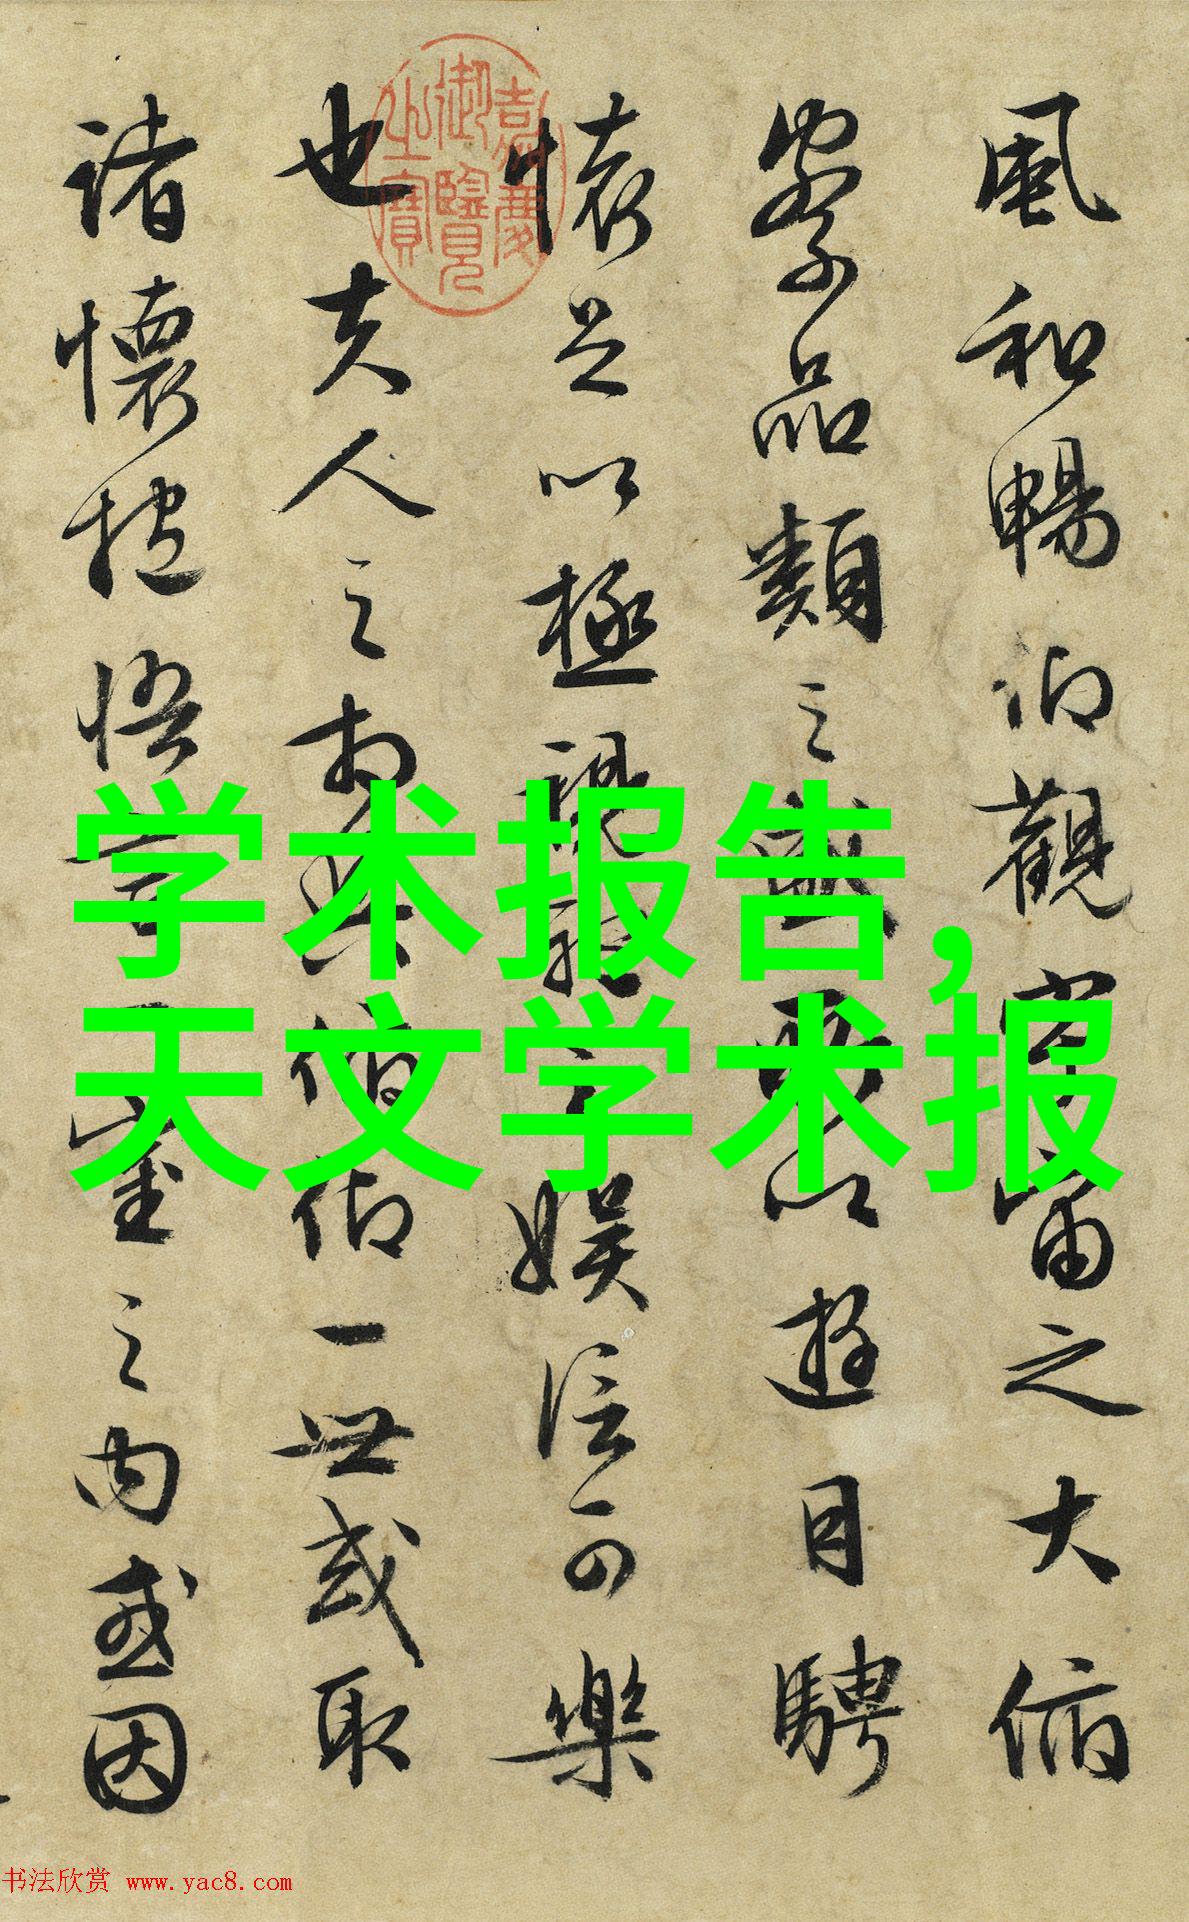 風和暢仰觀宇宙之大俯
察品類之盛所以遊目騁
懷足以極視聽之娛信可樂
也夫人之相與俯仰一世或取
諸懷抱悟言一室之內或因
嘉慶御覽之寶
学术报告,
天文学术报
书法欣赏 www.yac8.com